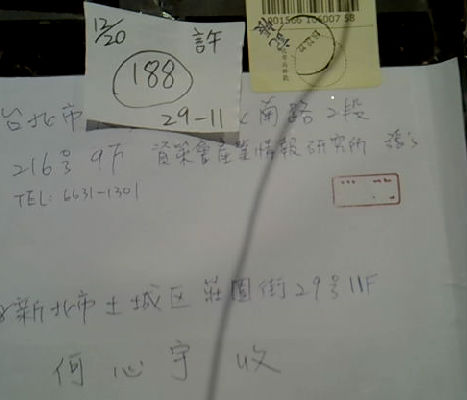 12/20
許
188
29-11
1001566 106007 58
台北市 南路2段
216号9F 資策會產業情報研究所
TEL: 6631-1301
新北市土城区莊園街29号11F
何心宇 收